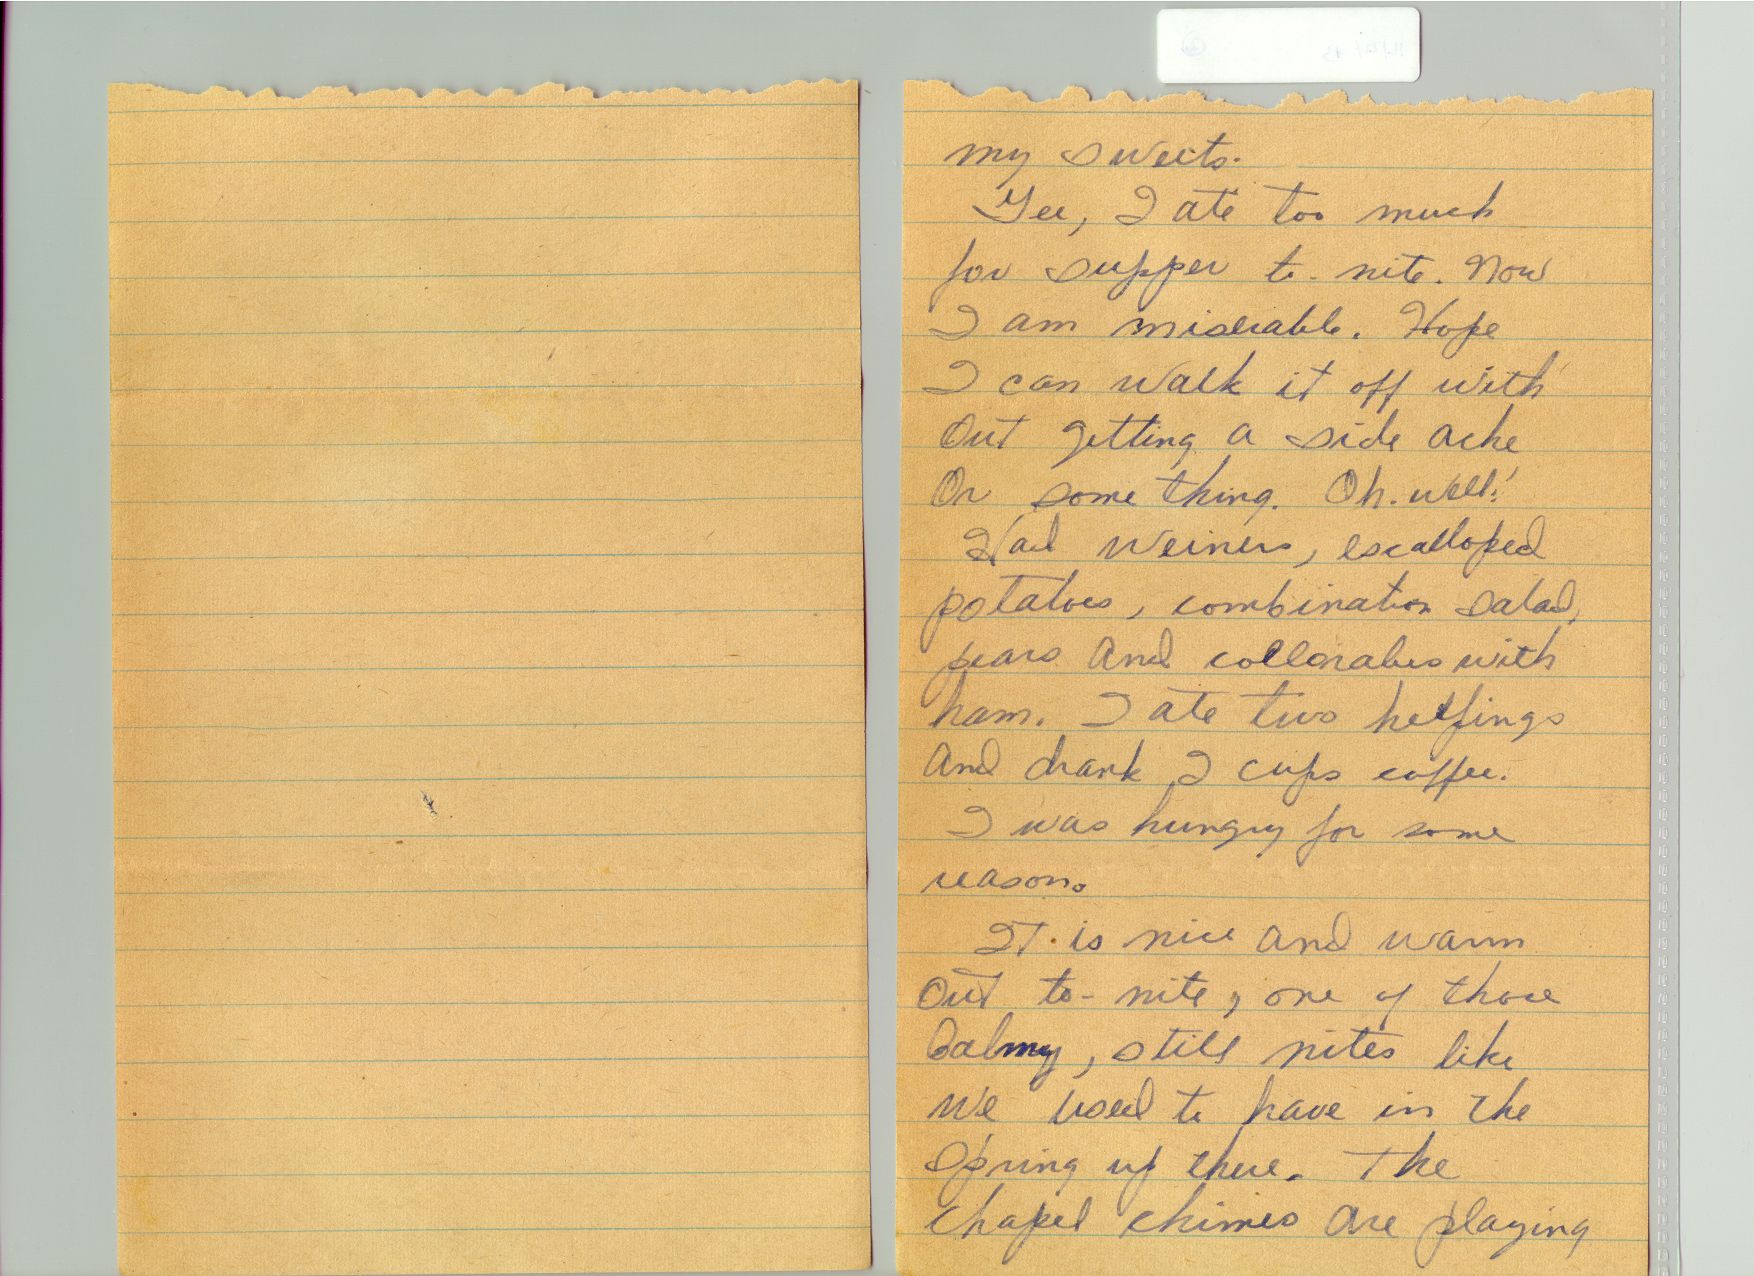 my sweets.
Gee, I ate too much
for supper to-nite. Now
I am miserable. Hope
I can walk it off with
out getting a side ache
Or some thing. Oh. well!
Had weiners, escalloped
potatoes, combination salad,
pears and collorabes with
ham. I ate two helpings
and drank 2 cups coffee.
I was hungry for some
reason.
It is nice and warm
out to-nite, one of those
balmy, still nites like
we used to have in the
Spring up there. The
chapel chimes are playing